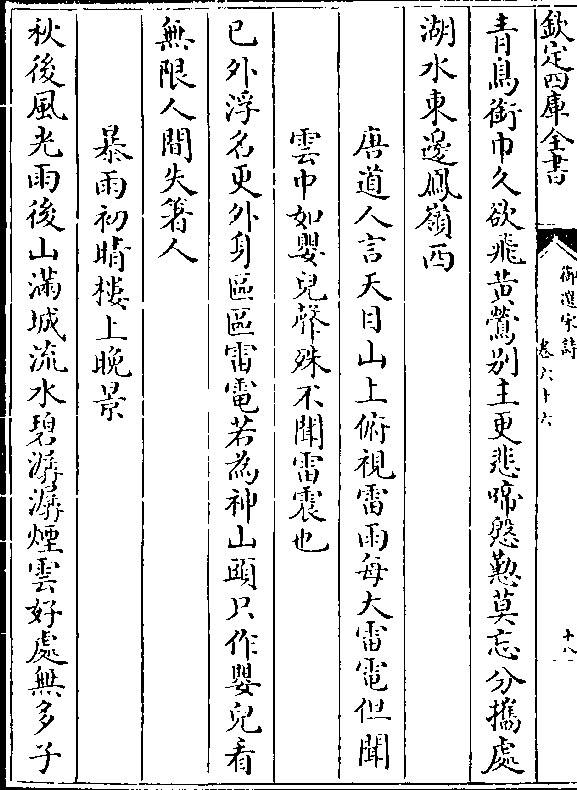 欽定四庫全書
御選宋詩
卷六十六
十八
青鳥銜巾久欲飛黃鶯别主更悲啼慇懃莫忘分攜處
湖水東邊鳳嶺西
唐道人言天目山上俯視雷雨每大雷電但聞
雲中如嬰兒聲殊不聞雷震也
已外浮名更外身區區雷電若為神山頭只作嬰兒看
無限人間失箸人
暴雨初晴樓上晚景
秋後風光雨後山滿城流水碧潺潺煙雲好處無多子